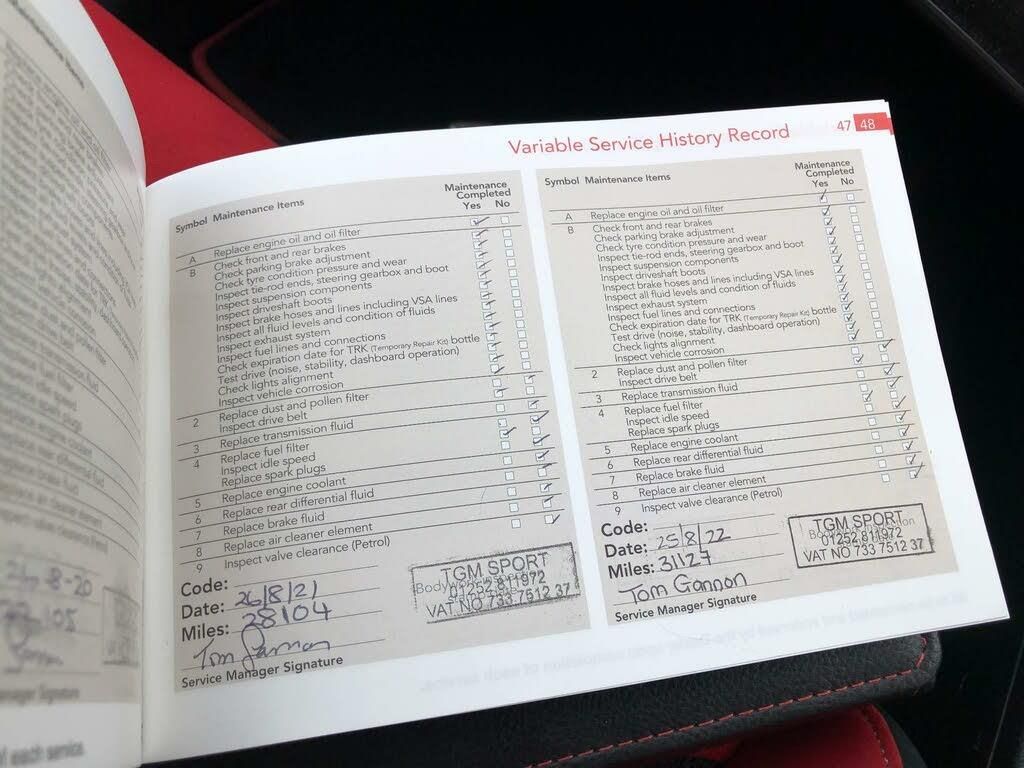 Variable Service History Record 47 48
Symbol Maintenance Items
Maintenance
Completed
Yes No
A Replace engine oil and oil filter
B Check front and rear brakes
Check parking brake adjustment
Check tyre condition pressure and wear
Inspect tie-rod ends, steering gearbox and boot
Inspect suspension components
Inspect driveshaft boots
Inspect brake hoses and lines including VSA lines
Inspect all fluid levels and condition of fluids
Inspect exhaust system
Inspect fuel lines and connections
Check expiration date for TRK (Temporary Repair Kit) bottle
Test drive (noise, stability, dashboard operation)
Check lights alignment
Inspect vehicle corrosion
2 Replace dust and pollen filter
Inspect drive belt
3 Replace transmission fluid
4 Replace fuel filter
Inspect idle speed
Replace spark plugs
5 Replace engine coolant
6 Replace rear differential fluid
7 Replace brake fluid
8 Replace air cleaner element
9 Inspect valve clearance (Petrol)
Code:
Date: 26/8/21
Miles: 28104
Tom Gannon
Service Manager Signature
TGM SPORT
01252 811972
VAT NO 733 7512 37
Symbol Maintenance Items
Maintenance
Completed
Yes No
A Replace engine oil and oil filter
B Check front and rear brakes
Check parking brake adjustment
Check tyre condition pressure and wear
Inspect tie-rod ends, steering gearbox and boot
Inspect suspension components
Inspect driveshaft boots
Inspect brake hoses and lines including VSA lines
Inspect all fluid levels and condition of fluids
Inspect exhaust system
Inspect fuel lines and connections
Check expiration date for TRK (Temporary Repair Kit) bottle
Test drive (noise, stability, dashboard operation)
Check lights alignment
Inspect vehicle corrosion
2 Replace dust and pollen filter
Inspect drive belt
3 Replace transmission fluid
4 Replace fuel filter
Inspect idle speed
Replace spark plugs
5 Replace engine coolant
6 Replace rear differential fluid
7 Replace brake fluid
8 Replace air cleaner element
9 Inspect valve clearance (Petrol)
Code:
Date: 25/8/22
Miles: 31127
Tom Gannon
Service Manager Signature
TGM SPORT
01252 811972
VAT NO 733 7512 37